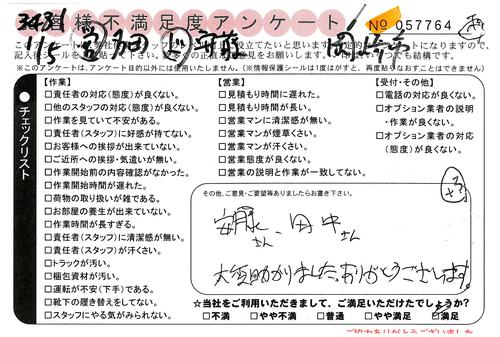 お客様不満足度アンケート
No 057764
※このアンケートは、アンケート目的以外には使用いたしません。(※情報保護シールは1度はがすと、再度貼りなおすことはできません)
チェックリスト
【作業】
□責任者の対応(態度)が良くない。
□他のスタッフの対応(態度)が良くない。
□作業を見ていて不安がある。
□責任者(スタッフ)に好感が持てない。
□お客様への挨拶が出来ていない。
□ご近所への挨拶・気遣いが無い。
□作業開始前の内容確認がなかった。
□作業開始時間が遅れた。
□荷物の取り扱いが雑である。
□お部屋の養生が出来ていない。
□作業時間が長すぎる。
□責任者(スタッフ)に清潔感が無い。
□責任者(スタッフ)が汗くさい。
□トラックが汚い。
□梱包資材が汚い。
□運転が不安(下手)である。
□靴下の履き替えをしてない。
□スタッフにやる気がみられない。
【営業】
□見積もり時間に遅れた。
□見積もり時間が長い。
□営業マンに清潔感が無い。
□営業マンが煙草くさい。
□営業マンが汗くさい。
□営業態度が良くない。
□営業の説明と作業が一致してない。
【受付・その他】
□電話の対応が良くない。
□オプション業者の説明
・作業が良くない。
□オプション業者の対応
(態度)が良くない。
その他、ご意見・ご要望等ありましたらお書き下さい。
さん、田中さん
大変助かりました。ありがとうございます。
☆当社をご利用いただきまして、ご満足いただけたでしょうか?
□不満 □やや不満 □普通 □やや満足 □満足
ご協力ありがとうございました